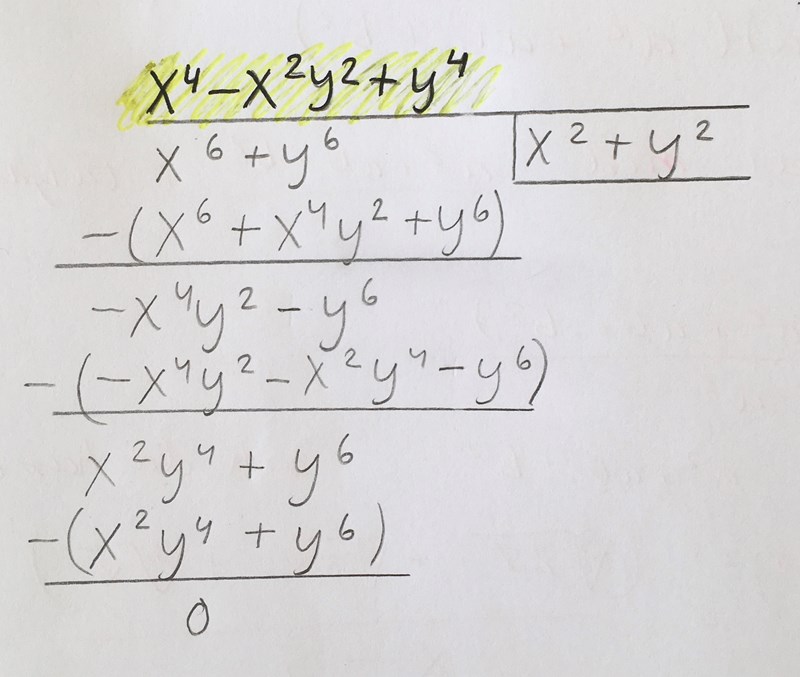 x⁴-x²y²+y⁴
x⁶+y⁶ x²+y²
-(x⁶+x⁴y²+y⁶)
-x⁴y²-y⁶
-(-x⁴y²-x²y⁴-y⁶)
x²y⁴+y⁶
-(x²y⁴+y⁶)
0